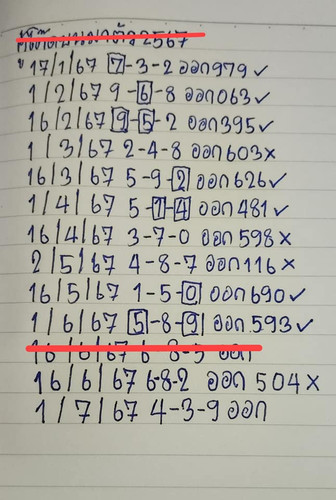 2567
ปี 17/1/67 7-3-2 ออก979✓
1/2/67 9-6-8 ออก063✓
16/2/67 9-5-2 ออก395✓
1/3/67 2-4-8 ออก603×
16/3/67 5-9-2 ออก626✓
1/4/67 5-1-4 ออก481✓
16/4/67 3-7-0 ออก598×
2/5/67 4-8-7 ออก116×
16/5/67 1-5-0 ออก690✓
1/6/67 5-8-9 ออก593✓
16/6/67 6-8-5 ออก
16/6/67 6-8-2 ออก 504×
1/7/67 4-3-9 ออก